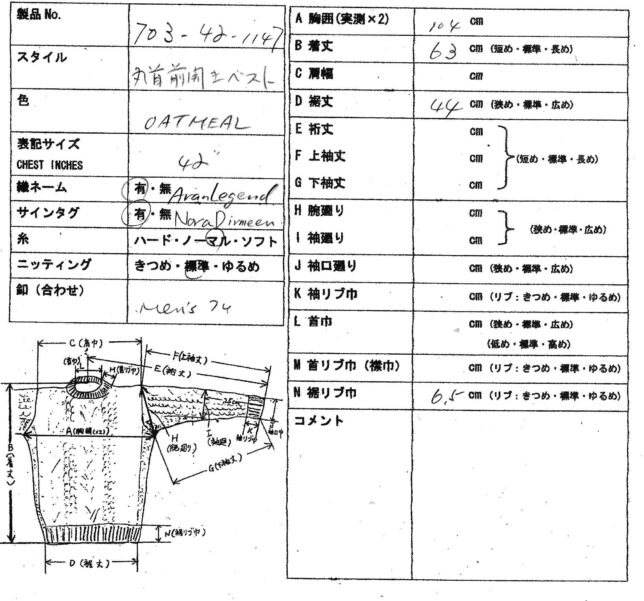 製品No. 703-42-1147
スタイル 丸首前開きベスト
色 OATMEAL
表記サイズ
CHEST INCHES 42"
織ネーム 有・無 AranLegend
サインタグ 有・無 Nora Dirmeen
糸 ハード・ノーマル・ソフト
ニッティング きつめ・標準・ゆるめ
釦（合わせ） Men's 74
A 胸囲(実測×2) 104 cm
B 着丈 63 cm (短め・標準・長め)
C 肩幅 cm
D 裾丈 44 cm (狭め・標準・広め)
E 裄丈 cm
F 上袖丈 cm (短め・標準・長め)
G 下袖丈 cm
H 腕廻り cm
I 袖廻り cm (狭め・標準・広め)
J 袖口廻り cm (狭め・標準・広め)
K 袖リブ巾 cm (リブ：きつめ・標準・ゆるめ)
L 首巾 cm (狭め・標準・広め)
(低め・標準・高め)
M 首リブ巾（襟巾） cm (リブ：きつめ・標準・ゆるめ)
N 裾リブ巾 6.5 cm (リブ：きつめ・標準・ゆるめ)
コメント
C(肩巾)
F(上袖丈)
E(裄丈)
L
(首巾)
H(首リブ巾)
A(胸囲(×2))
B(着丈)
H
(腕廻り)
I
(袖廻)
K
袖リブ巾
J
袖口巾
G(下袖丈)
N(裾リブ巾)
D(裾丈)